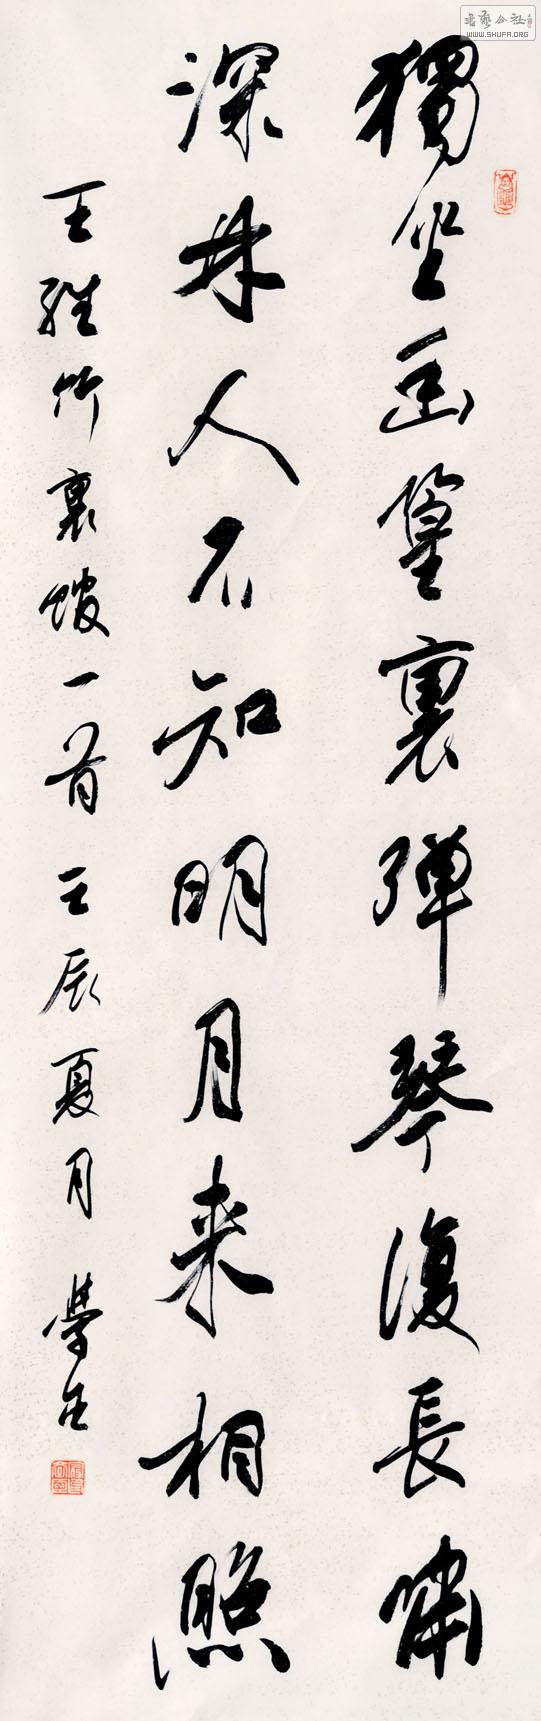 獨坐幽篁裏彈琴復長嘯
深林人不知明月來相照
王維竹裏館一首 壬辰夏月 學
書藝公社
WWW.SHUFA.ORG